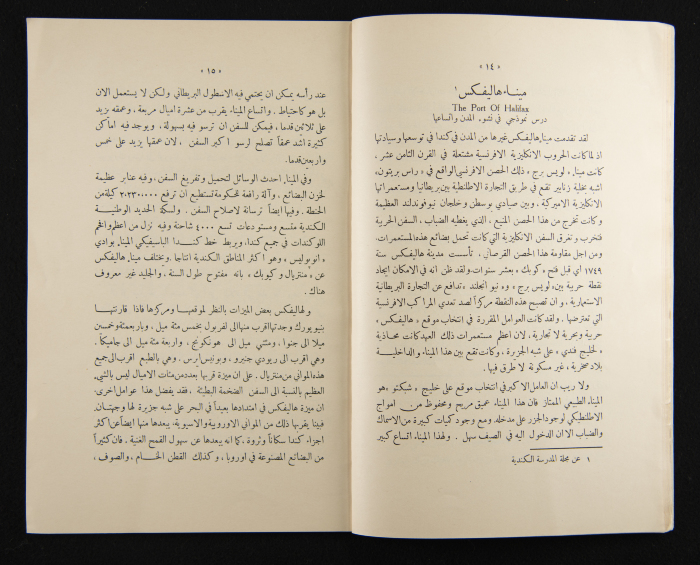 « ١٤ »
ميناء هاليفكس ١
The Port Of Halifax
درس نموذجي في نشوء المدن واتساعها
لقد تقدمت ميناء هاليفكس غيرها من المدن في كندا في توسعها وسيادتها
اذ لما كانت الحروب الانكليزية الافرنسية مشتعلة في القرن الثامن عشر ،
كانت ميناء « لويس برج » ذلك الحصن الافرنسي الواقع في « راس بريتون »
اشبه بخلية زنابير تقع في طريق التجارة الاطلنطية بين بريطانيا ومستعمراتها
الانكليزية الاميركية ، وبين صيادي بوسطن وخلجان نيوفوندلند العظيمة
وكانت تخرج من هذا الحصن المنيع ، الذي يغطيه الضباب ، السفن الحربية
فتخرب وتغرق السفن الانكليزية التي كانت تحمل بضائع هذه المستعمرات.
ومن اجل مقاومة هذا الحصن القرصاني ، تأسست مدينة هاليفكس سنة
١٧٤٩ اي قبل فتح « كوبك » بعشر سنوات. ولقد ظن انه في الامكان ايجاد
نقطة حربية بين « لويس برج » و« نيو انجلند » تدافع عن التجارة البريطانية
الاستعمارية ، وان تصبح هذه النقطة مركزاً لصد تعدي المراكب الافرنسية
التي تعترضها . ولقد كانت العوامل المقررة في انتخاب موقع « هاليفكس »
حربية وبحرية لا تجارية ، لان اعظم مستعمرات ذلك العهد كانت محاذية
« لخليج فندي » على شبه الجزيرة . وكانت تقع بين هذا الميناء والداخلية
بلاد صخرية ، غير مسكونة لا طرق فيها .
ولا ريب ان العامل الاكبر في انتخاب موقع على خليج « شبكتو » هو
الميناء الطبيعي الممتاز فان هذا الميناء عميق مريح ومحفوظ من امواج
الاطلنطيكي لوجود الجزر على مدخله. ومع وجود كميات كبيرة من الاسماك
والضباب الا ان الدخول اليه في الصيف سهل . ولهذا الميناء اتساع كبير
١ عن مجلة المدرسة الكندية
« ١٥ »
عند رأسه يمكن ان يحتمي فيه الاسطول البريطاني ولكن لا يستعمل الان
بل هو كاحتياط . واتساع الميناء يقرب من عشرة اميال مربعة ، وعمقه يزيد
على ثلاثين قدما ، فيمكن للسفن ان ترسو فيه بسهولة ، ويوجد فيه اماكن
كثيرة اشد عمقاً تصلح لرسو اكبر السفن ، لان عمقها يزيد على خمس
واربعين قدما.
وفي الميناء احدث الوسائل لتحميل وتفريغ السفن . وفيه عنابر عظيمة
لخزن البضائع ، وآلة رافعة للحكومة تستطيع ان ترفع ٢٠٢٣٠٠٠٠ كيلة من
الحنطة . وفيها ايضاً ترسانة لاصلاح السفن . والسكة الحديد الوطنية
الكندية متسع ومستودعات تسع ٤٠٠٠ شاحنة وفيه نزل من اعظم وافخم
اللوكندات في جميع كندا. ويربط خط كندا الباسيفيكي الميناء بوادي
« انوبوليس » وهو اكثر المناطق الكندية انتاجا ويختلف ميناء هاليفكس
عن « منتريال وكيوبك » بانه مفتوح طول السنة ، والجليد غير معروف
هناك .
ولهاليفكس بعض الميزات بالنظر لموقعها ومركزها فاذا قارنتها
بنيويورك وجدتها اقرب منها الى لفربول بخمس مئة ميل ، وباربعمئة وخمسين
ميلا الى جنوا ، ومئتي ميل الى هونكونج ، واربعة مئة ميل الى جاميكا .
وهي اقرب الى ريودي جنيرو ، وبونيس ايرس . وهي بالطبع اقرب الى جميع
هذه المواني من منتريال . على ان ميزة قربها بعدد من مئات الاميال ليس بالشيء
العظيم بالنسبة الى السفن الضخمة البطيئة ، فقد يفضل هذا عوامل اخرى .
ان ميزة هاليفكس في امتدادها بعيداً في البحر على شبه جزيرة لها وجهتان.
فبينا يقربها ذلك من المواني الاوروبية والاسيوية ، يبعدها منها ايضاً عن اكثر
اجزاء كندا سكاناً وثروة ، كما انه يبعدها عن سهول القمح الغنية . فان كثيراً
من البضائع المصنوعة في اوروبا ، وكذلك القطن الخام ، والصوف ،